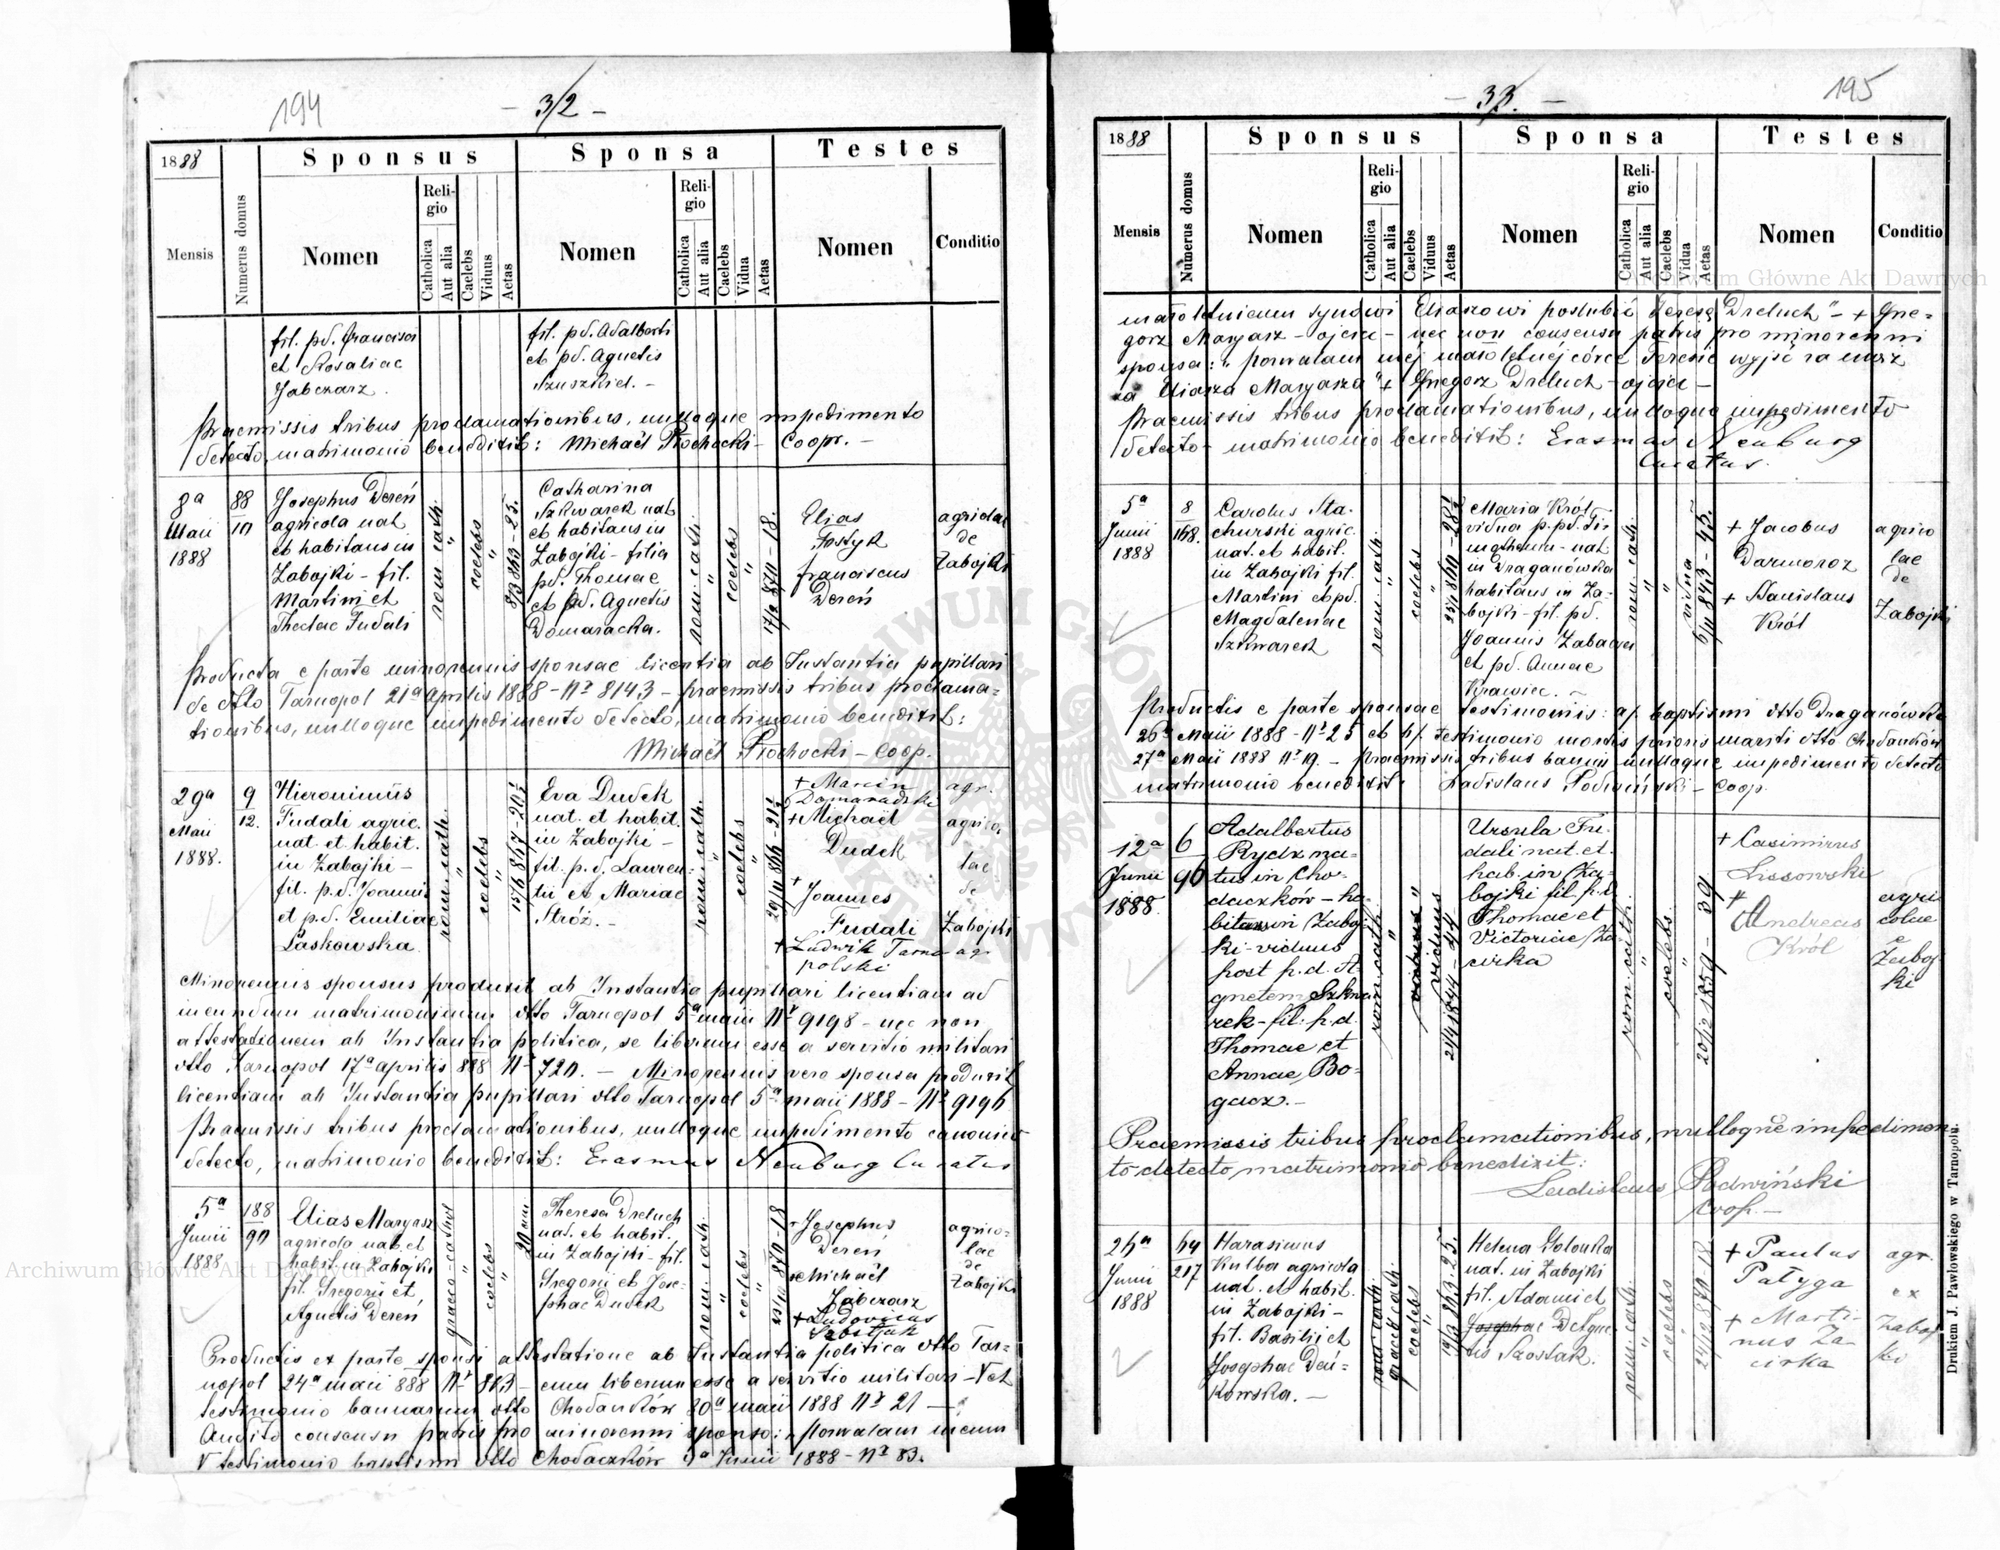 194
- 32 -
1888
Sponsus
Sponsa
Testes
Mensis
Numerus domus
Nomen
Religio
Catholica
Aut alia
Caelebs
Viduus
Aetas
Nomen
Religio
Catholica
Aut alia
Caelebs
Vidua
Aetas
Nomen
Conditio
fil. pd. Francisci
et Rosaliae
Jabczarz.
fil. pd. Adalberti
et pd. Agnetis
Szuszkiel. -
Praemissis tribus proclamationibus, nulloque impedimento
detecto, matrimonio benedixit: Michaël Płochocki - Coopr. -
8a
Maii
1888
88
Josephus Dereń
agricola nat.
et habitans in
Zabojki - fil.
Martini et
Theclae Fudali
rom. cath.
"
coelebs
"
8/3 863 - 25.
Catharina
Szkwarek nat.
et habitans in
Zabojki - filia
pd. Thomae
et pd. Agnetis
Domaracka.
rom. cath.
"
coelebs
"
17/2 870 - 18.
Elias
Kostyk
Franciscus
Dereń
agricolae
de
Zabojki
Producta e parte minorennis sponsae licentia ab Instantia pupillari
de dtto Tarnopol 21a Aprilis 1888 - Nr 8143 - praemissis tribus proclama=
tionibus, nulloque impedimento detecto, matrimonio benedixit:
Michaël Płochocki - Coop.
29a
Maii
1888.
9
12.
Hieronimus
Fudali agric.
nat. et habit.
in Zabojki -
fil. p.d. Joannis
et p.d. Emiliae
Laskowska.
rom. cath.
"
coelebs
"
Eva Dudek
nat. et habit.
in Zabojki -
fil. p.d. Lauren-
tii et Mariae
Stróż. -
rom. cath.
"
coelebs
"
+ Marcin
Domaradzki
+ Michaël
Dudek
+
Joannes
Fudali
+ Ludwik Tarno
polski
agr.
agrico.
lae
de
Zabojki
agr.
Minorennis sponsus produxit ab Instantia pupillari licentiam ad
ineundum matrimonium dtto Tarnopol 5a maii Nr 9198 - nec non
attestationem ab Instantia politica, se liberum esse a servitio militari
dtto Tarnopol 17a aprilis 888 Nr 720. - Minorennis vero sponsa produxit
licentiam ab Instantia pupillari dtto Tarnopol 5a maii 1888 - Nr 9196
Praemissis tribus proclamationibus, nulloque impedimento canonico
detecto, matrimonio benedixit: Erasmus Neuburg Curatus
5a
Junii
1888
188
90
Elias Maryasz
agricola nat. et
habit. in Zabojki
fil. Gregorii et
Agnetis Dereń
graeco-cathol
"
coelebs
"
Theresa Dreluch
nat. et habit.
in Zabojki - fil.
Gregorii et Jose-
phae Dudek
rom. cath.
"
coelebs
"
+ Josephus
Dereń
+ Michaël
Jabczarz
+ Ludovicus
agrico-
lae
de
Zabojki
Productis ex parte sponsi attestatione ab Instantia politica dtto Tar-
nopol 24a maii 888 Nr 863 - eum liberum esse a servitio militari - et
testimonio bannorum dtto Chodaczków 20a maii 1888 Nr 21 -
Audito consensu patris pro minorenni sponso: "Pozwalam memu
V testimonio baptismi dtto Chodaczków Junii 1888 - Nr 83.
195
- 33. -
1888
Sponsus
Sponsa
Testes
Mensis
Numerus domus
Nomen
Religio
Catholica
Aut alia
Caelebs
Viduus
Aetas
Nomen
Religio
Catholica
Aut alia
Caelebs
Vidua
Aetas
Nomen
Conditio
małoletniemu synowi Eliaszowi poślubić Teresę Dreluch" - + Grze-
gorz Maryasz - ojciec - nec non consensu patris pro minorenni
sponsa: "pozwalam mej małoletniej córce Teresie wyjść za mąż
za Eliasza Maryasza" + Gregorz Dreluch - ojciec -
Praemissis tribus proclamationibus, nulloque impedimento
detecto - matrimonio benedixit: Erasmus Neuburg
Curatus.
5a
Junii
1888
8
168.
Carolus Sta-
churski agric.
nat. et habit.
in Zabojki fil.
Martini et pd.
Magdalenae
Szkwarek
rom. cath.
"
coelebs
"
Maria Król
vidua p. pd. Ti-
motheum - nat
in Draganówka
habitans in Za-
bojki - fil. pd.
Joannis Zabawa
et pd. Annae
Krawiec. -
rom. cath.
"
vidua
6/11 843 - 45.
+ Jacobus
Darmoroz
+ Stanislaus
Król
agrico
lae
de
Zabojki
Productis e parte sponsae testimoniis: a/ baptismi dtto Draganówka
26a Maii 1888 - Nr 25 et b/ testimonio mortis prioris mariti dtto Chodaczków
27a Maii 1888 Nr 19. - Praemissis tribus bannis nulloque impedimento detecto
matrimonio benedixit Ladislaus Podwiński - Coop.
12a
Junii
1888.
6
96
Adalbertus
Rydz na-
tus in Cho-
daczków - ha-
bitans in Zaboj-
ki - viduus
post p.d. A-
gnetem Szkwa
rek - fil: p.d.
Thomae et
Annae Bo-
gacz. -
rom. cath.
"
viduus
21/4 1844 - 44
Ursula Fu-
dali nat. et.
hab. in Za-
bojki fil. p.d.
Thomae et
Victoriae Za-
cirka
rom. cath.
"
coelebs.
"
20/2 1859 - 39
+ Casimirus
Lissowski
+
Andreas
Król
agri
colae
e
Zaboj-
ki
Praemissis tribus proclamationibus, nulloque impedimen-
to detecto matrimonio benedixit:
Ladislaus Podwiński
Coop. -
26a
Junii
1888
64
217
Harasimus
Kulba agricola
nat. et habit.
in Zabojki -
fil. Basilii et
Josephae Dań-
kowska. -
rom cath.
graeck cath.
coelebs
"
19/3 863. 25.
Helena Golonka
nat. in Zabojki
fil. Adami et
Josephae et Agne-
tis Szostak.
rom. cath.
"
coelebs
"
24/2 870 - 18
+ Paulus
Patyga
+ Marti-
nus Za-
cirka
agr.
ex
Zaboj-
ki
Drukiem J. Pawłowskiego w Tarnopolu.
Archiwum Główne Akt Dawnych
Archiwum Główne Akt Dawnych